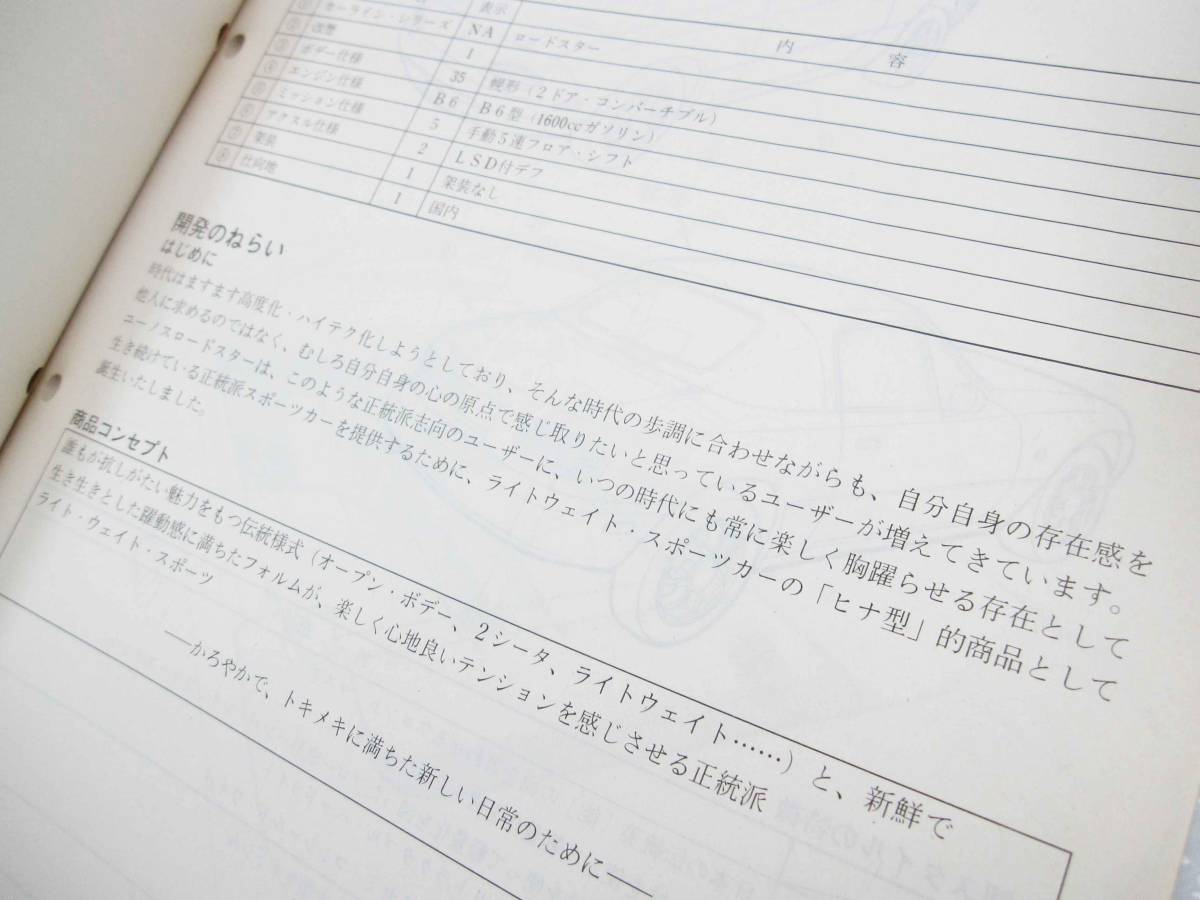 表示 内容
カーライン・シリーズ NA ロードスター
改型 1
ボデー仕様 35 幌形（2ドア・コンバーチブル）
エンジン仕様 B6 B6型（1600ccガソリン）
ミッション仕様 5 手動5速フロア・シフト
アクスル仕様 2 LSD付デフ
⑦ 架装 1 架装なし
⑧ 仕向地 1 国内
開発のねらい
はじめに
時代はますます高度化・ハイテク化しようとしており、そんな時代の歩調に合わせながらも、自分自身の存在感を
他人に求めるのではなく、むしろ自分自身の心の原点で感じ取りたいと思っているユーザーが増えてきています。
ユーノスロードスターは、このような正統派志向のユーザーに、いつの時代にも常に楽しく胸躍らせる存在として
生き続けている正統派スポーツカーを提供するために、ライトウェイト・スポーツカーの「ヒナ型」的商品として
誕生いたしました。
商品コンセプト
誰もが抗しがたい魅力をもつ伝統様式（オープン・ボデー、2シータ、ライトウェイト……）と、新鮮で
生き生きとした躍動感に満ちたフォルムが、楽しく心地良いテンションを感じさせる正統派
ライト・ウェイト・スポーツ
——かろやかで、トキメキに満ちた新しい日常のために——